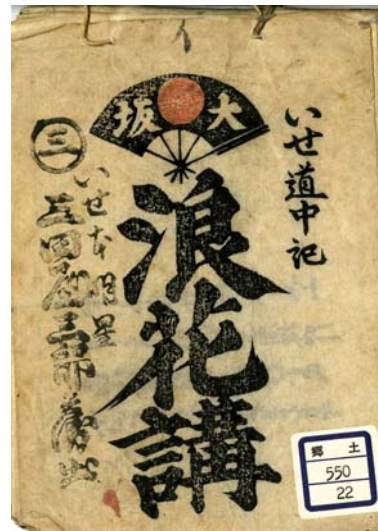 いせ道中記
大坂
浪花講
三
いせ本明星
郷土
550
22